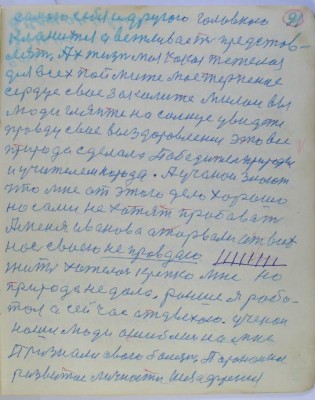 самого себя и другого головкого 91
кланится а ветливасть представ-
лять. Ах тизи моя какая тяжолая
для всех поймите мое терпение
сердце свае закалите милаи вы
люди гляите на солнце увидите
правду свае выздоровлении это все
природа сделала Победителя природы
и учителя народа. А ученаи знают
что мне от этого дело хорошо
но сами не хотят пробавать
А меня Иванова аторвали от всех
нас своею не правдаю
жить хотелос крепко мне но
природа не дола. раньше я рабо-
тол а сейчас отдыхою. ученаи
наши люди ошиблис на мне
Признали своею болезню Пароноиное
развитае личности Шизафрения